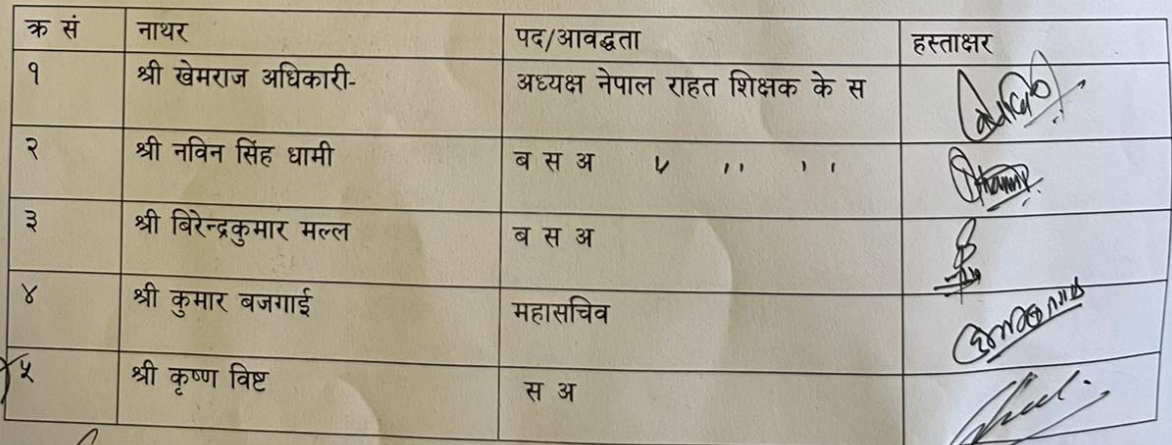 क्र सं नाथर पद/आवद्धता हस्ताक्षर
१ श्री खेमराज अधिकारी- अध्यक्ष नेपाल राहत शिक्षक के स
२ श्री नविन सिंह धामी ब स अ ,, ,, ,,
३ श्री बिरेन्द्रकुमार मल्ल ब स अ
४ श्री कुमार बजगाई महासचिव
५ श्री कृष्ण विष्ट स अ